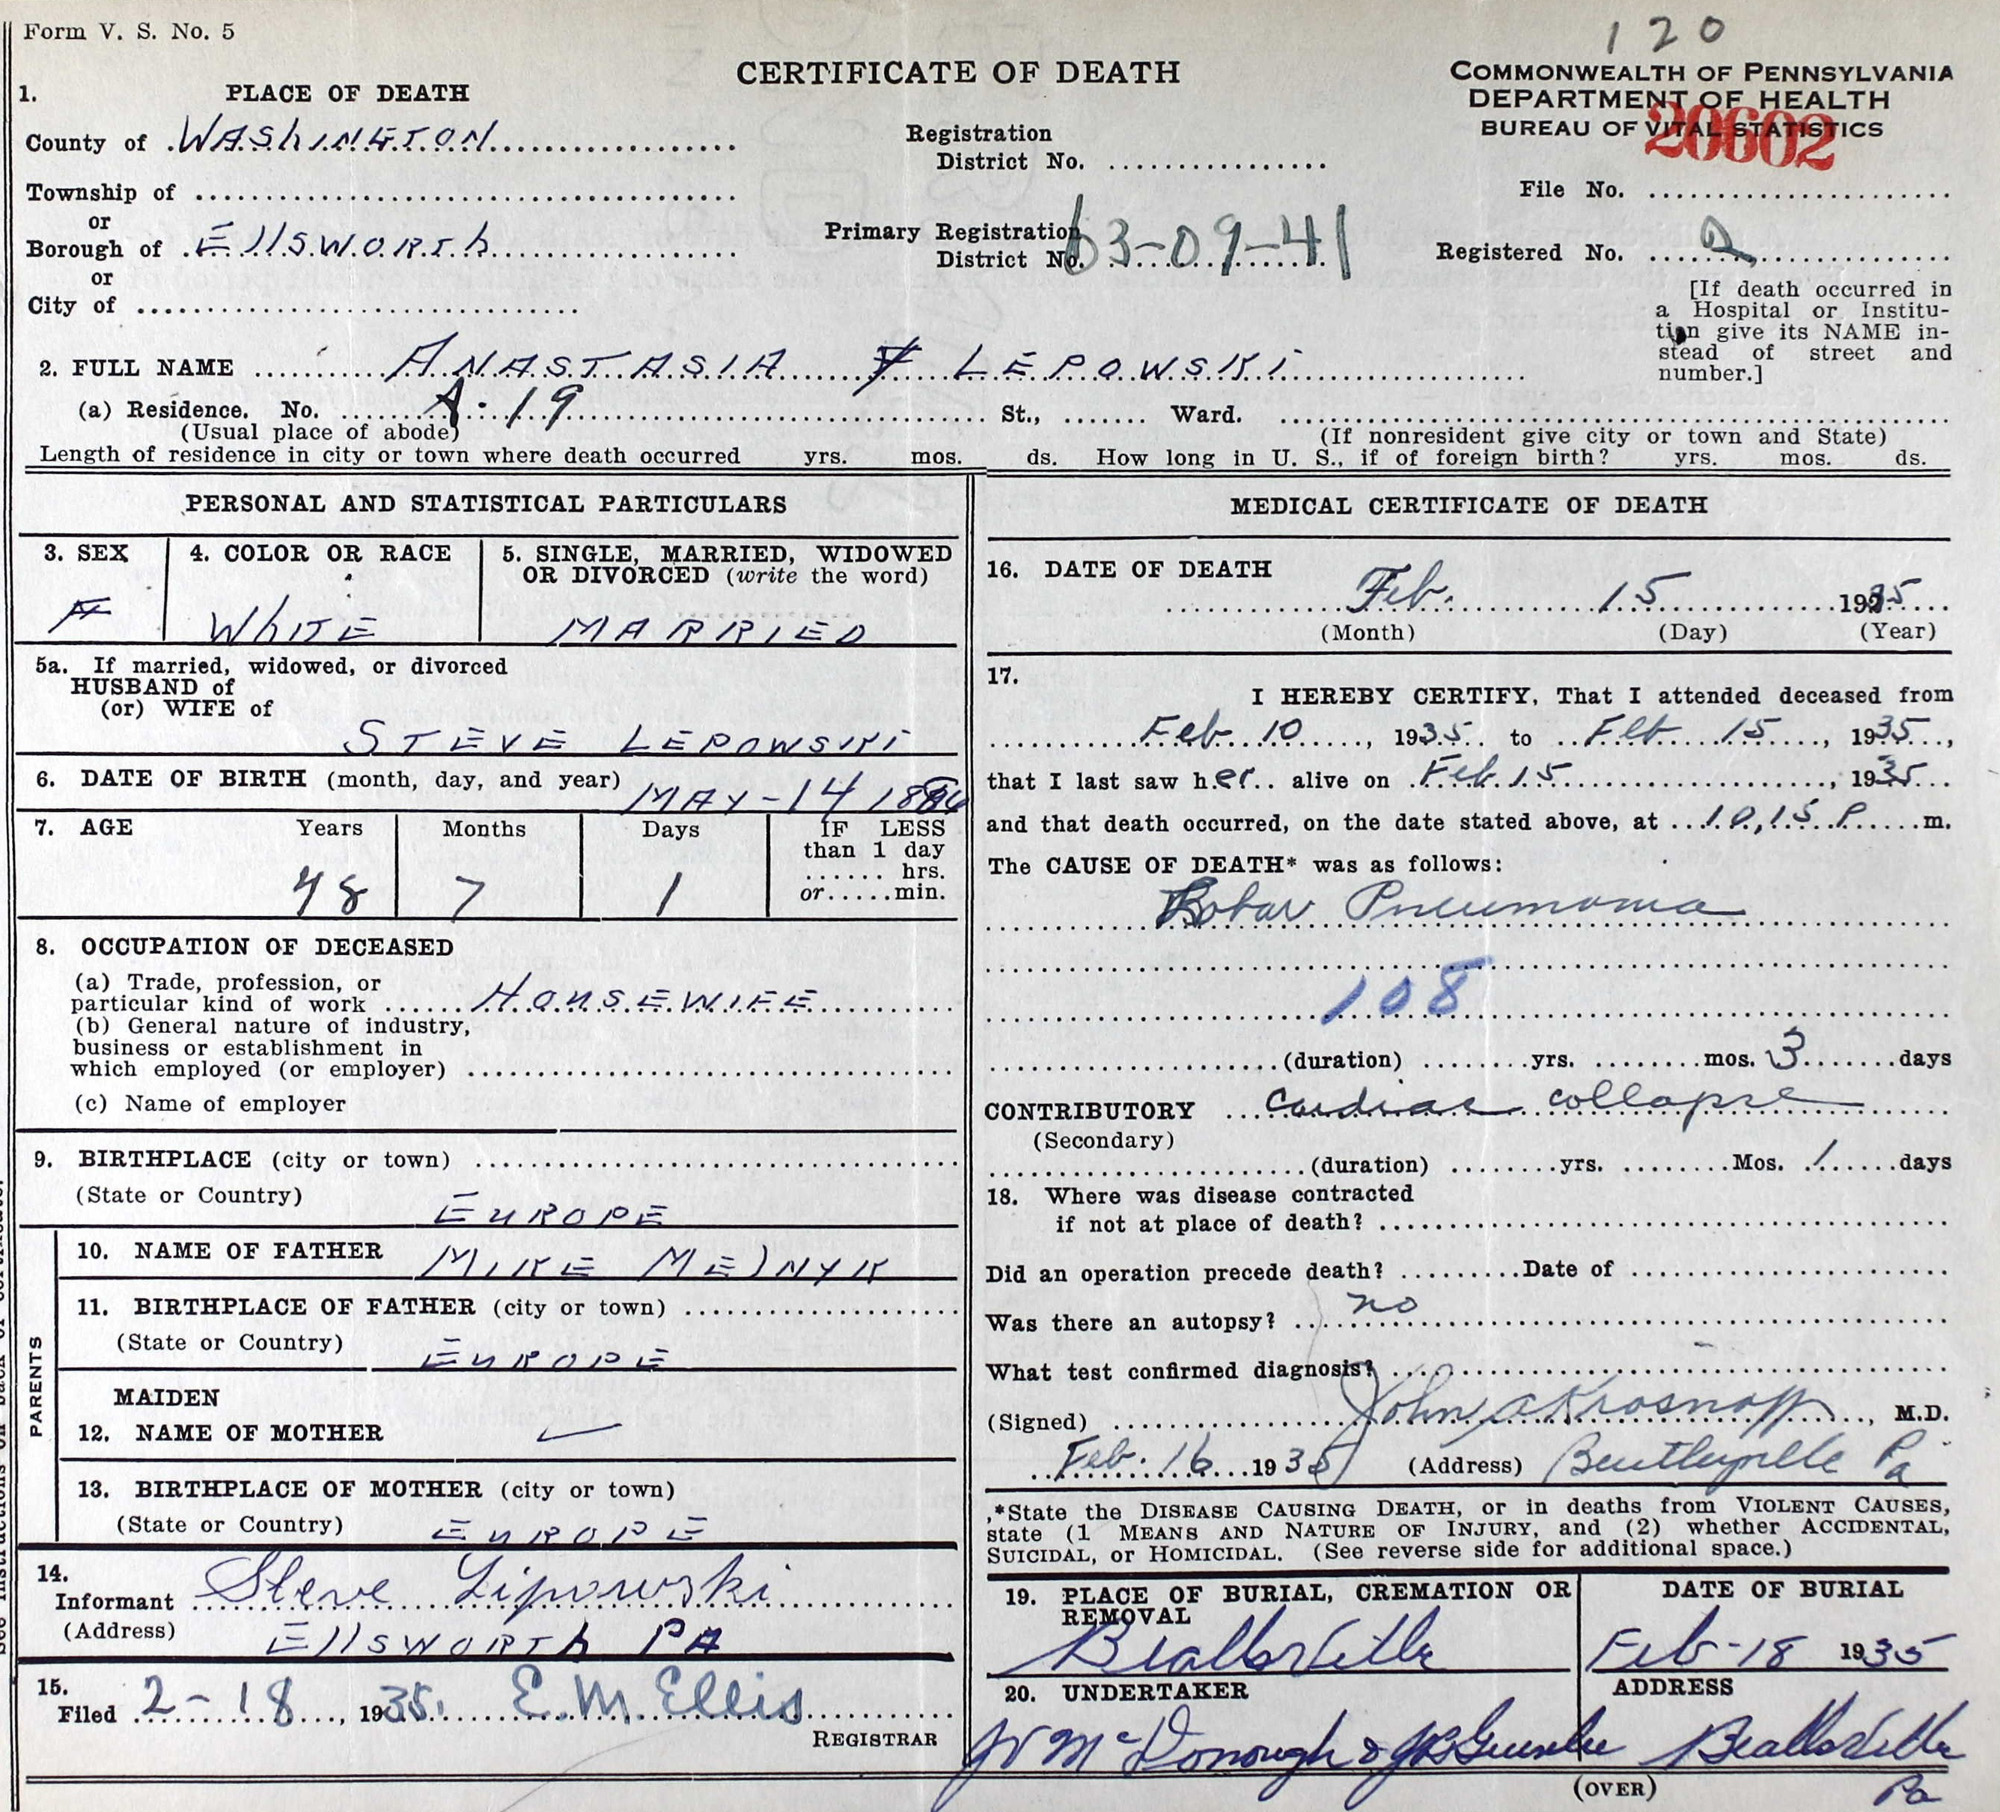 Form V. S. No. 5
120
CERTIFICATE OF DEATH
COMMONWEALTH OF PENNSYLVANIA
DEPARTMENT OF HEALTH
BUREAU OF VITAL STATISTICS
20602
1. PLACE OF DEATH
County of WAShINGTON
Township of
or
Borough of EllSWORTh
or
City of
Registration
District No.
Primary Registration
District No. 63-09-41
File No.
Registered No. 2
[If death occurred in
a Hospital or Institu-
tion give its NAME in-
stead of street and
number.]
2. FULL NAME ANASTASIA LEPOWSKI
(a) Residence. No. A-19 St., Ward.
(Usual place of abode) (If nonresident give city or town and State)
Length of residence in city or town where death occurred yrs. mos. ds. How long in U. S., if of foreign birth? yrs. mos. ds.
PERSONAL AND STATISTICAL PARTICULARS
3. SEX
F
4. COLOR OR RACE
WhITE
5. SINGLE, MARRIED, WIDOWED
OR DIVORCED (write the word)
MARRIED
5a. If married, widowed, or divorced
HUSBAND of
(or) WIFE of
STEVE LEPOWSKI
6. DATE OF BIRTH (month, day, and year) MAY-14 1886
7. AGE Years Months Days IF LESS
than 1 day
hrs.
or min.
48 7 1
8. OCCUPATION OF DECEASED
(a) Trade, profession, or
particular kind of work HOUSEWIFE
(b) General nature of industry,
business or establishment in
which employed (or employer)
(c) Name of employer
9. BIRTHPLACE (city or town)
(State or Country)
EUROPE
PARENTS
10. NAME OF FATHER MIKE MElNYK
11. BIRTHPLACE OF FATHER (city or town)
(State or Country)
EUROPE
MAIDEN
12. NAME OF MOTHER
13. BIRTHPLACE OF MOTHER (city or town)
(State or Country) EUROPE
14.
Informant Steve Lipowski
(Address) EllSWORTh PA
15.
Filed 2-18, 1935. E. M. Ellis
REGISTRAR
MEDICAL CERTIFICATE OF DEATH
16. DATE OF DEATH
Feb. 15 1935
(Month) (Day) (Year)
17.
I HEREBY CERTIFY, That I attended deceased from
Feb 10, 1935 to Feb 15, 1935,
that I last saw her alive on Feb 15, 1935
and that death occurred, on the date stated above, at 10,15 P m.
The CAUSE OF DEATH* was as follows:
Lobar Pneumonia
108
(duration) yrs. mos. 3 days
CONTRIBUTORY Cardiac collapse
(Secondary)
(duration) yrs. Mos. 1 days
18. Where was disease contracted
if not at place of death?
Did an operation precede death? Date of
Was there an autopsy? no
What test confirmed diagnosis?
(Signed) John A Krosnoff, M.D.
Feb. 16 1935 (Address) Bentleyville Pa
*State the DISEASE CAUSING DEATH, or in deaths from VIOLENT CAUSES,
state (1 MEANS AND NATURE OF INJURY, and (2) whether ACCIDENTAL,
SUICIDAL, or HOMICIDAL. (See reverse side for additional space.)
19. PLACE OF BURIAL, CREMATION OR
REMOVAL
Beallsville
DATE OF BURIAL
Feb-18 1935
20. UNDERTAKER
McDonough &
ADDRESS
Beallsville
Pa
(OVER)